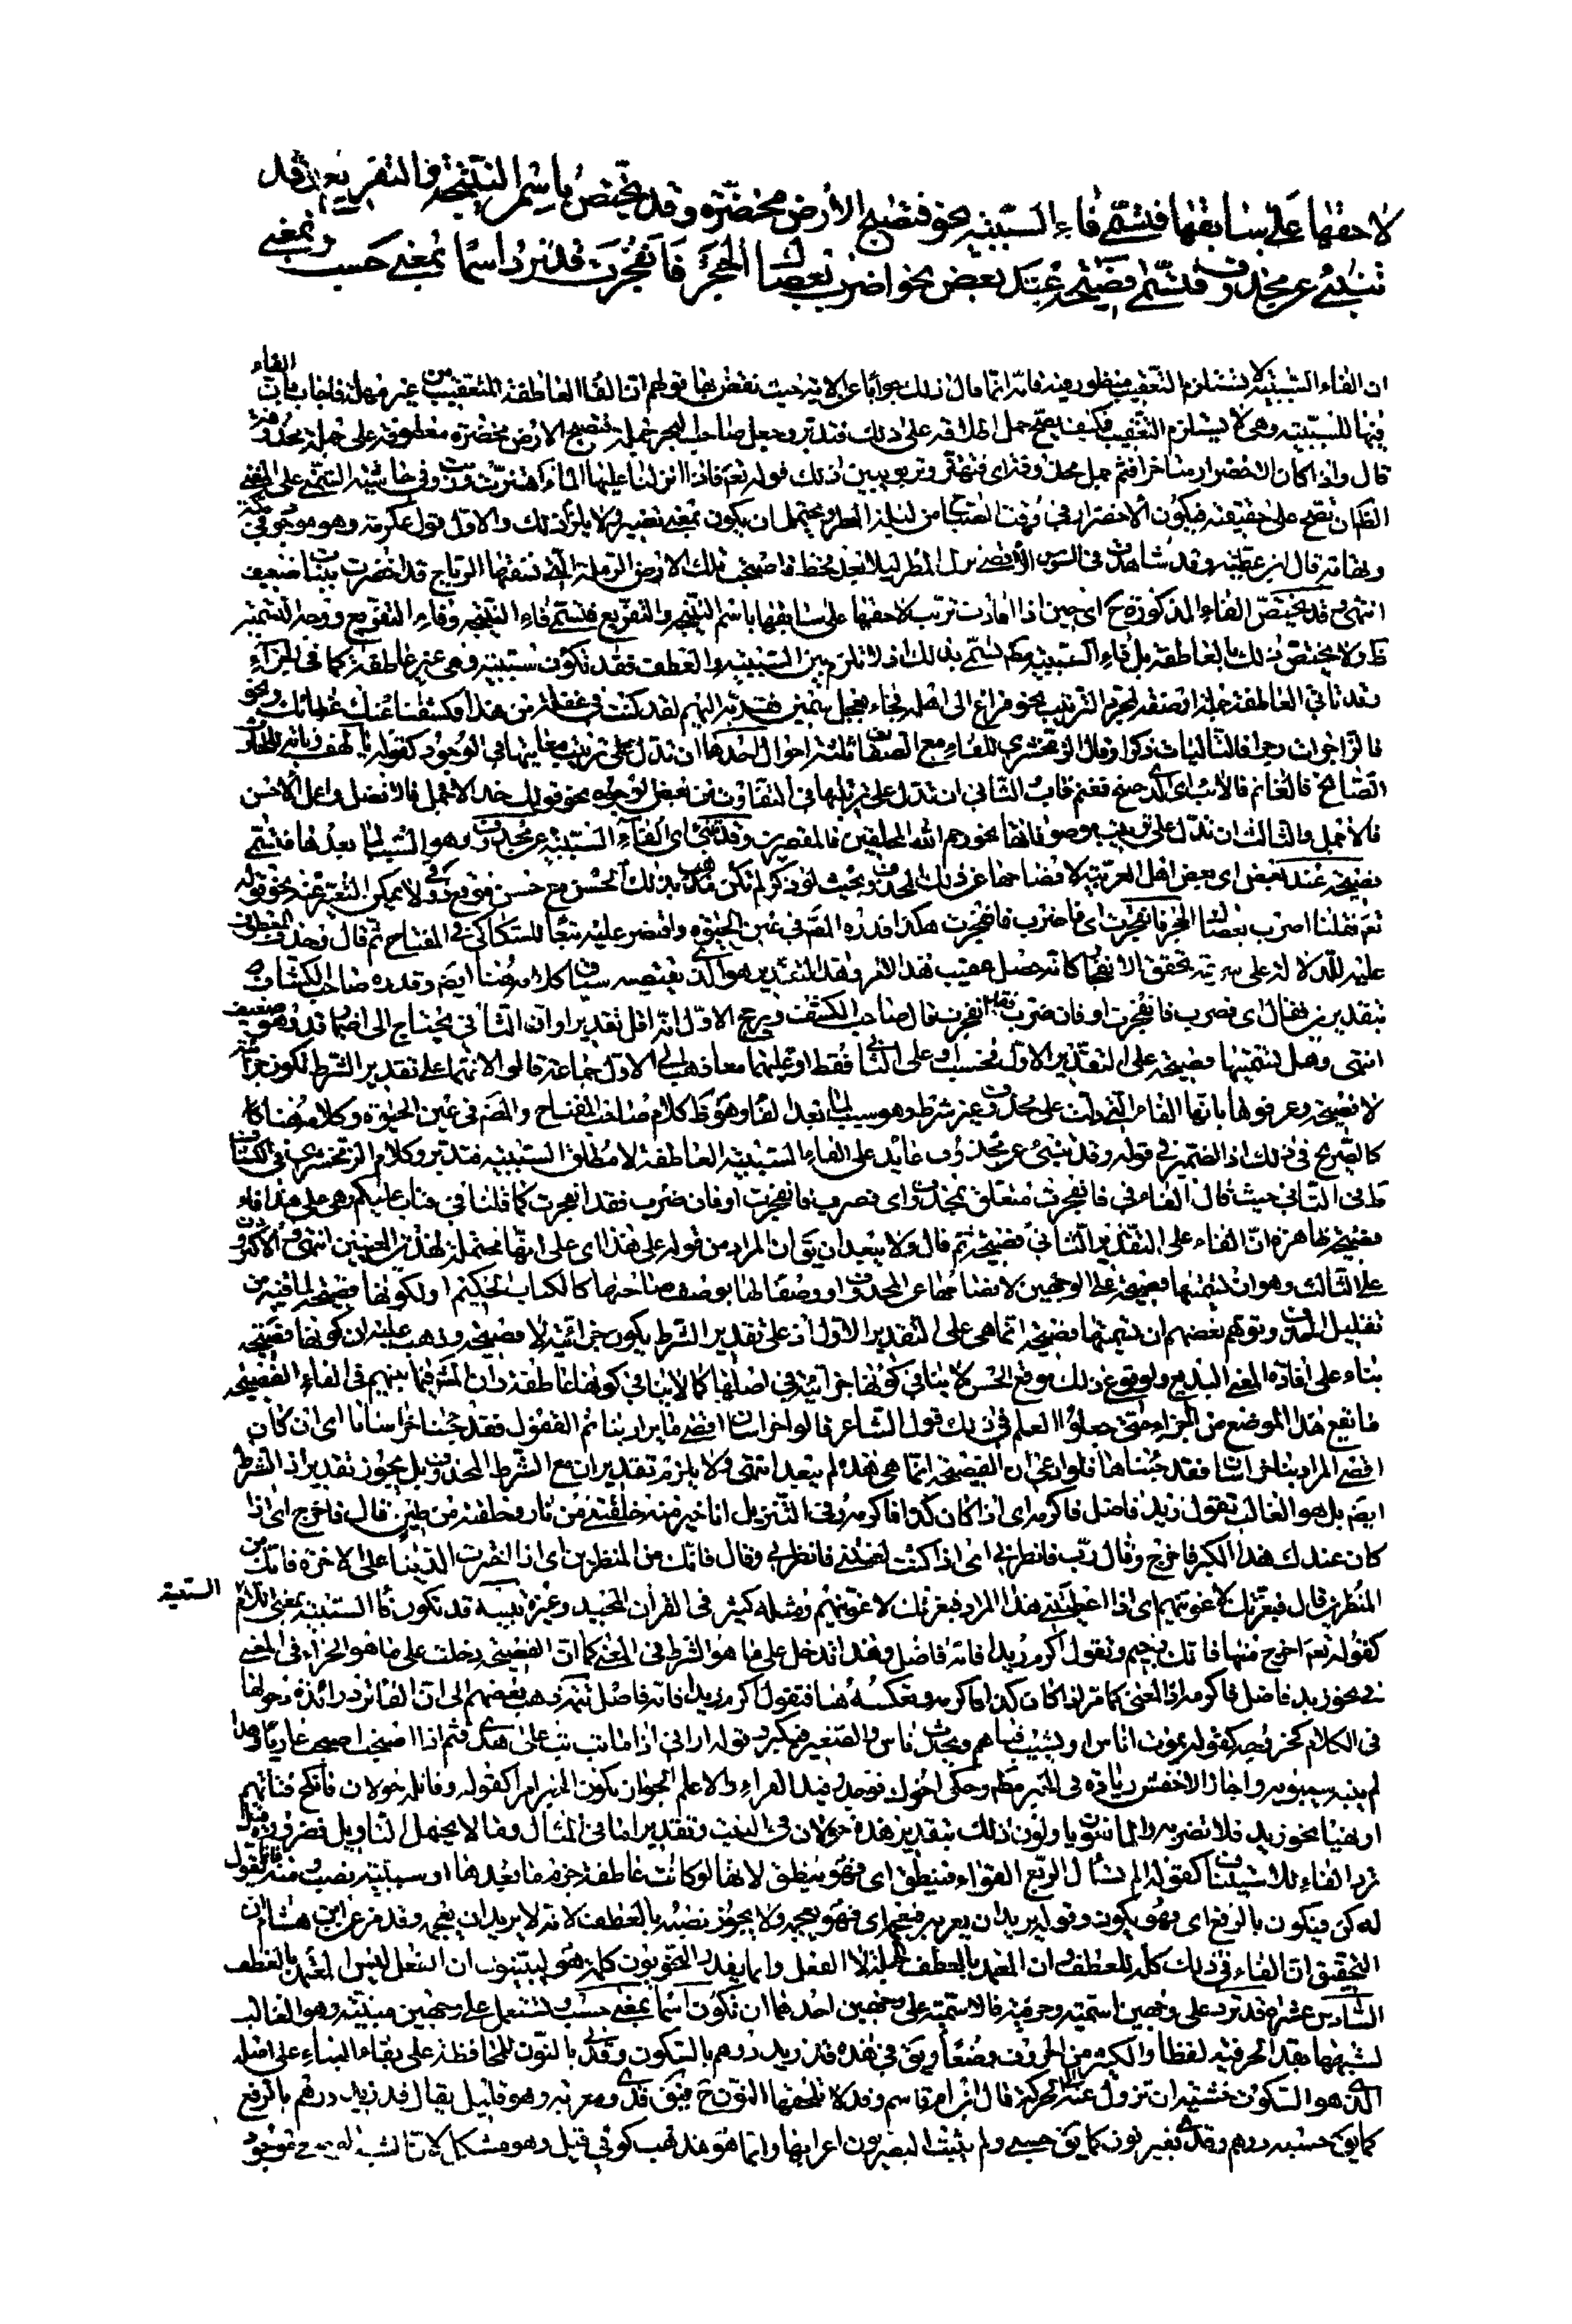 لاحقها على سابقها فتسمى فاء السببية نحو فتصبح الأرض مخضرة وقد يختص باسم النتيجة والتفريع وقد
تنبئ عن محذوف فتسمى فصيحة عند بعض نحو اضرب بعصاك الحجر فانفجرت قد ترد اسما بمعنى حسب وبمعنى
ان الفاء السببية لا تستلزم التعقيب منظور فيه فانه انما قال ذلك جوابا عن الاية حيث نقض بها قولهم ان الفاء العاطفة للتعقيب من غير مهلة فاجاب بان الفاء
فيها للسببية وهي لا تستلزم التعقيب فكيف يصح حمل اطلاقه على ذلك فتدبر وجعل صاحب جملة فتصبح الارض مخضرة معطوفة على جملة محذوفة
قال واذا كان الاخضرار متأخرا فثم جمل محذوفة اى فتهتز وتربو يبين ذلك قوله تعم فاذا انزلنا عليها الماء اهتزت وربت وفى حاشية على المغنى
على حقيقته فيكون الاخضرار فى وقت الصباح من ليلة المطر ويحتمل ان يكون بمعنى تصير ولا يلزم ذلك والاول قول عكرمة وهو موجود فى مكة
قال ابن عطية وقد شاهدت فى السوس الاقصى نزل المطر ليلا بعد قحط فاصبحت تلك الارض الرملة التى تسفها الرياح قد اخضرت بنبات ضعيف
انتهى وقد يختص الفاء المذكورة ح اى حين اذا افادت ترتب لاحقها على سابقها باسم النتيجة والتفريع فتسمى فاء النتيجة وفاء التفريع ووجه التسمية
ظ ولا يختص ذلك بالعاطفة بل فاء السببية مطم تسمى بذلك اذ لا تلازم بين السببية والعطف فقد تكون سببية وهى غير عاطفة كما فى الجزاء
وقد تأتى العاطفة جملة او صفة لمجرد الترتيب نحو فراغ الى اهله فجاء بعجل سمين فقربه اليهم لقد كنت فى غفلة من هذا فكشفنا عنك غطائك ونحو
فالزاجرات زجرا فالتاليات ذكرا وقال الزمخشرى للفاء مع الصفات ثلثة احوال احدها ان تدل على ترتيب معانيها فى الوجود كقوله يا لهف زيابة للحارث
الصابح فالغانم فالآئب اى الذى صبح فغنم فآب الثانى ان تدل على ترتيبها فى التفاوت من بعض الوجوه نحو قولك خذ الاكمل فالافضل واعمل الاحسن
فالاجمل والثالث ان تدل على ترتيب موصوفاتها نحو رحم الله المحلقين فالمقصرين وقد تنبئ اى الفاء السببية عن محذوف وهو السبب لما بعدها فتسمى
فصيحة عند بعض اى بعض اهل العربية لافصاحها عن ذلك المحذوف بحيث لو ذكر لم تكن بذلك الحسن مع حسن موقع ذوقى لا يمكن التعبير عنه نحو قوله
تعم فقلنا اضرب بعصاك الحجر فانفجرت اى فاضرب فانفجرت هكذا قدره المصم فى عين الحيوة واقتصر عليه تبعا للسكاكى فى المفتاح ثم قال وحذف المعطوف
عليه للدلالة على سرعة تحقق الانفجار كأنه حصل عقيب هذا الامر وهذا التقدير هو الذى يقتضيه سياق كلامه هنا ايضم وقدره صاحب الكشاف
بتقديرين فقال اى فضرب فانفجرت او فان ضربت فقد انفجرت قال صاحب الكشف ويرجح الاول انه اقل تقديرا وان الثانى يحتاج الى اضمار قد وهو ضعيف
انتهى وهل تسميتها فصيحة على التقدير الاول فحسب او على الثانى فقط او عليهما معا ذهب الى الاول جماعة قالوا لانها على تقدير الشرط تكون جزائية
لا فصيحة وعرفوها بانها الفاء التى دلت على محذوف غير شرط وهو سبب لما بعد الفاء وهو ظ كلام صاحب المفتاح والمصم فى عين الحيوة وكلامه هنا
كالصريح فى ذلك اذ الضمير فى قوله وقد تنبئ عن محذوف عايد على الفاء السببية العاطفة لا مطلق السببية فتدبر وكلام الزمخشرى فى الكشاف
ظ فى الثانى حيث قال الفاء فى فانفجرت متعلق بمحذوف اى فضرب فانفجرت او فان ضربت فقد انفجرت كما قلنا فى فتاب عليكم وهى على هذا فاء
فصيحة ظاهره ان الفاء على التقدير الثانى فصيحة ثم قال ولا يبعد ان يق ان المراد من قوله على هذا اى على انها محتملة لهذين المعنيين انتهى والاكثرون
على الثالث وهو ان تسميتها فصيحة على الوجهين لافصاحها عن المحذوف او وصفا لها بوصف صاحبها كالكتاب الحكيم او لكونها فصيحة لما فيه من
تقليل الحذف وتوهم بعضهم ان تسميتها فصيحة انما هى على التقدير الاول اذ على تقدير الشرط يكون جزائية لا فصيحة وذهب عليه ان كونها فصيحة
بناء على افادة المعنى البديع ولوقوع ذلك موقع الحسن لا ينافى كونها جزائية فى اصلها كما لا ينافى كونها عاطفة
ما تقع هذا الموضع من الجزاء حتى جعلوا العلم فى ذلك قول الشاعر قالوا خراسان اقصى ما يراد بنا ثم القفول فقد جئنا خراسانا اى ان كان
اقصى المراد بنا خراسان فقد جئناها فلو ادعى ان الفصيحة انما هى هذه لم يبعد انتهى ولا يلزم تقدير ان مع الشرط المحذوف بل يجوز تقدير اذا الشرط
ايضم بل هو الغالب تقول زيد فاضل فاكرمه اى اذا كان كذا فاكرمه وفى التنزيل انا خير منه خلقتنى من نار وخلقته من طين قال فاخرج اى اذا
كان عندك هذا الكبر فاخرج وقال رب فانظرنى اى اذا كنت لعنتنى فانظرنى وقال فانك من المنظرين اى اذا اخترت الدنيا على الاخرة فانك من
المنظرين قال فبعزتك لاغوينهم اى اذا اعطيتنى هذا المراد فبعزتك لاغوينهم ومثله كثير فى القرآن المجيد وغيره تنبيه قد تكون فاء السببية بمعنى لام السببية
كقوله تعم اخرج منها فانك رجيم وتقول اكرم زيدا فانه فاضل وهذه تدخل على ما هو الشرط فى المعنى كما ان الفصيحة دخلت على ما هو الجزاء فى المعنى
فى نحو زيد فاضل فاكرمه اذ المعنى كما مر اذا كان كذا فاكرمه وبعكسه هنا فتقول اكرم زيدا فانه فاضل ذهب بعضهم الى ان الفاء ترد زائدة دخولها
فى الكلام كخروجه كقوله يموت اناس او يشيب فتاهم ويحدث ناس والصغير فيكبر وقوله ارانى اذا ما بت بت على هوى فثم اذا اصبحت اصبحت غاديا وهذا
لم يثبته سيبويه واجاز الاخفش زيادته فى الخبر مطم وحكى اخوك فوجد وقيد الفراء والاعلم الجواز بكون الخبر امرا كقوله وقائلة خولان فانكح فتاتهم
او نهيا نحو زيد فلا تضربه والمانعون ذلك بتقدير هذه خولان فى البيت وتقدير اما فى المثال وما لا يحتمل التأويل فضرورة
ترد الفاء للاستيناف كقوله الم تسأل الربع القواء فينطق اى فهو ينطق لانها لو كانت عاطفة جزم ما بعدها او سببية نصب ومنه فانما يقول
له كن فيكون بالرفع اى فهو يكون وقوله يريد ان يعربه فيعجمه اى فهو يعجمه ولا يجوز نصبه بالعطف لانه لا يريد ان يعجمه وقد مر عن ابن هشام ان
التحقيق ان الفاء فى ذلك كله للعطف وان المعتمد بالعطف الجملة لا الفعل وانما يقدر النحويون كلمة هو ليبينوا ان الفعل ليس المعتمد بالعطف
السادس عشر قد ترد على وجهين اسمية وحرفية فالاسمية على وجهين احدهما ان تكون اسما بمعنى حسب وتستعمل على وجهين مبنية وهو الغالب
لشبهها بقد الحرفية لفظا والكثير من الحروف وضعا ويق فى هذه قد زيد درهم بالسكون وقدنى بالنون للمحافظة على بقاء البناء على اصله
الذى هو السكون خشية ان تزول عنه بالحركة قال ابن ام قاسم وقد لا تلحقها النون ح فيق قدى ومعربة وهو قليل يقال قد زيد درهم بالرفع
كما يق حسبه درهم وقدى بغير نون كما يق حسبى ولم يثبت البصريون اعرابها وانما هو مذهب كوفى قيل وهو مشكل لان الشبه موجود